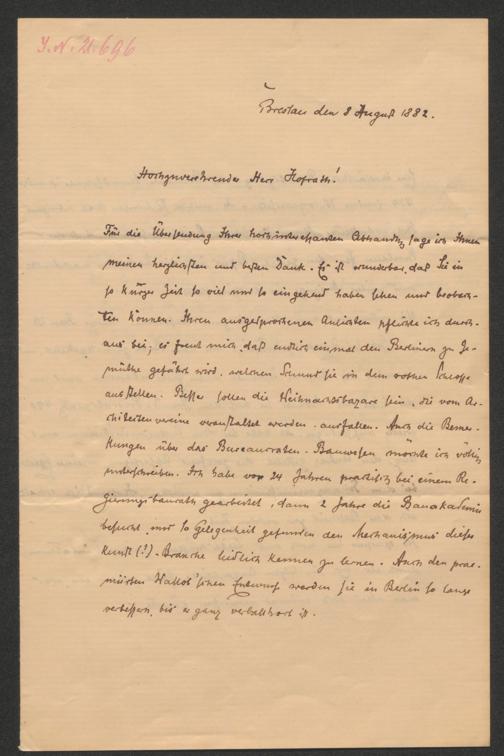 J. N. 21.696
Breslau den 8 August 1882.
Hochzuverehrender Herr Hofrath!
Für die Übersendung Ihrer hochinteressanten Abhandlg sage ich Ihnen
meinen herzlichsten und besten Dank. Es ist wunderbar, daß Sie in
so kurzer Zeit so viel und so eingehend haben sehen und beobach-
ten können. Ihren ausgesprochenen Ansichten pflichte ich durch-
aus bei; es freut mich, daß endlich einmal den Berlinern zu Ge-
müthe geführt wird, welchen Schund sie in dem rothen Schloße
ausstellen. Besser sollen die Weihnachtsbazare sein, die vom Ar-
chitectenvereine veranstaltet werden. ausfallen. Auch die Bemer-
kungen über das Bureaucraten-Bauwesen möchte ich völlig
unterschreiben. Ich habe vor 24 Jahren practisch bei einem Re-
gierungsbaurath gearbeitet, dann 2 Jahre die Bauakademie
besucht und so Gelegenheit gefunden den Mechanismus dieser
Kunst (!?)-Branche leidlich kennen zu lernen. Auch den prae-
miirten Wallot'schen Entwurf werden sie in Berlin so lange
verbessern, bis er ganz verballhort ist.